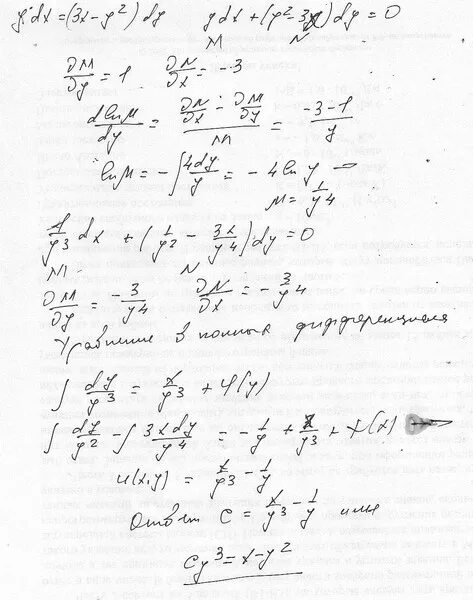 y·dx = (3x - y²) dy   ydx + (y² - 3x) dy = 0
M   N
∂M/∂y = 1   ∂N/∂x = -3
d ln μ/dy = (∂N/∂x - ∂M/∂y)/M = (-3-1)/y
ln μ = -∫ 4dy/y = -4 ln y
μ = 1/y⁴
1/y³ dx + (1/y² - 3x/y⁴) dy = 0
M   N
∂M/∂y = -3/y⁴   ∂N/∂x = -3/y⁴
Уравнение в полных дифференциалах
∫ dy/y³ = x/y³ + φ(y)
∫ dy/y² - ∫ 3x dy/y⁴ = -1/y + x/y³ + ψ(x)
u(x,y) = x/y³ - 1/y
Ответ C = x/y³ - 1/y или
Cy³ = x - y²